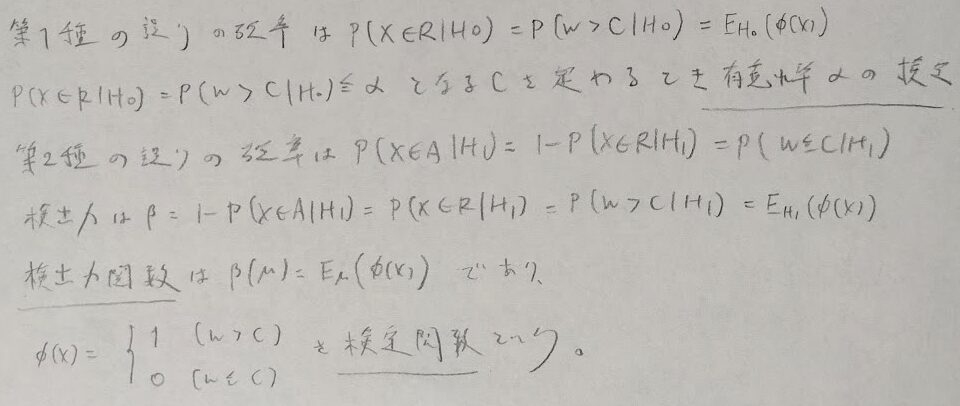 第1種の誤りの確率は P(X∈R|H₀) = P(W > C|H₀) = E_H₀(φ(X))
P(X∈R|H₀) = P(W > C|H₀) ≦ α となる C を定めるとき 有意水準 α の検定
第2種の誤りの確率は P(X∈A|H₁) = 1-P(X∈R|H₁) = P(W≦C|H₁)
検出力は β = 1-P(X∈A|H₁) = P(X∈R|H₁) = P(W > C|H₁) = E_H₁(φ(X))
検出力関数は β(μ) = E_μ(φ(X)) であり、
φ(X) = { 1 (W > C) 0 (W ≦ C) を検定関数という。